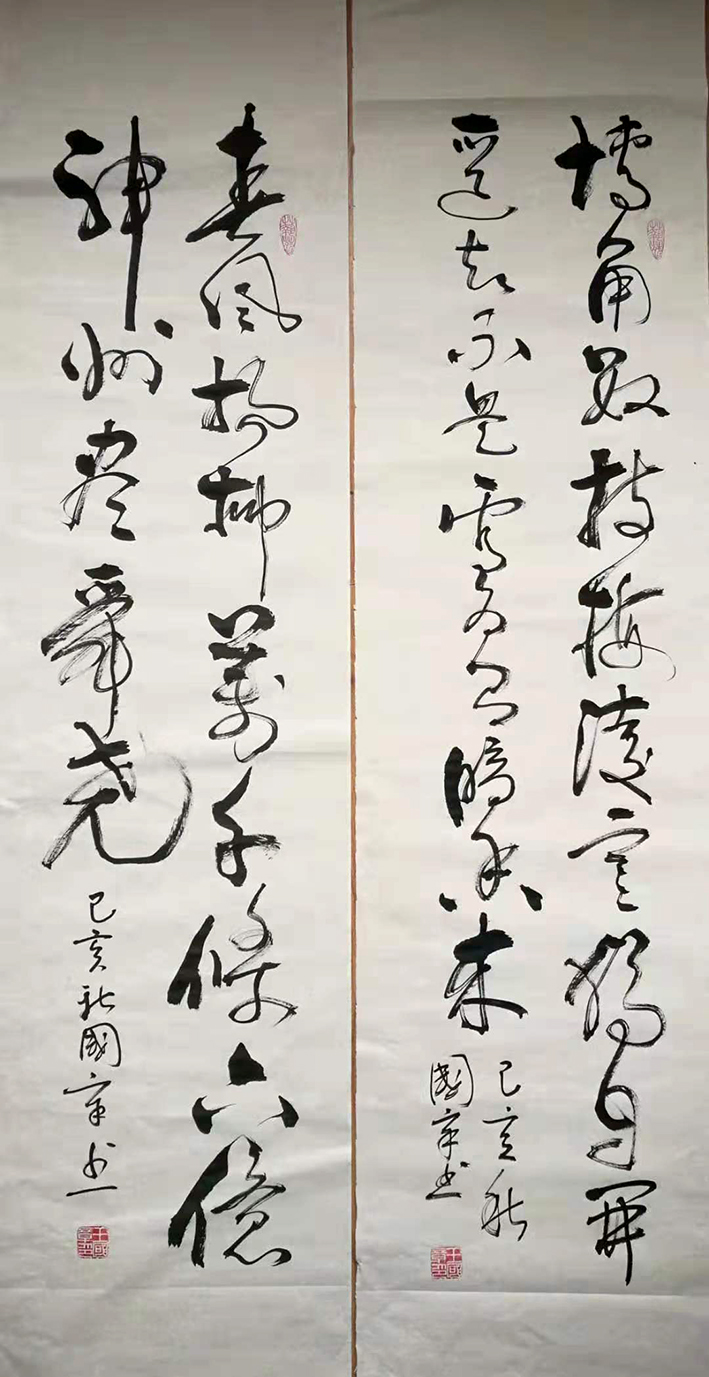 墙角数枝梅凌寒独自开
遥知不是雪为有暗香来
己亥秋
国章书
春风杨柳万千條六億
神州尽舜尧
己亥秋国章书